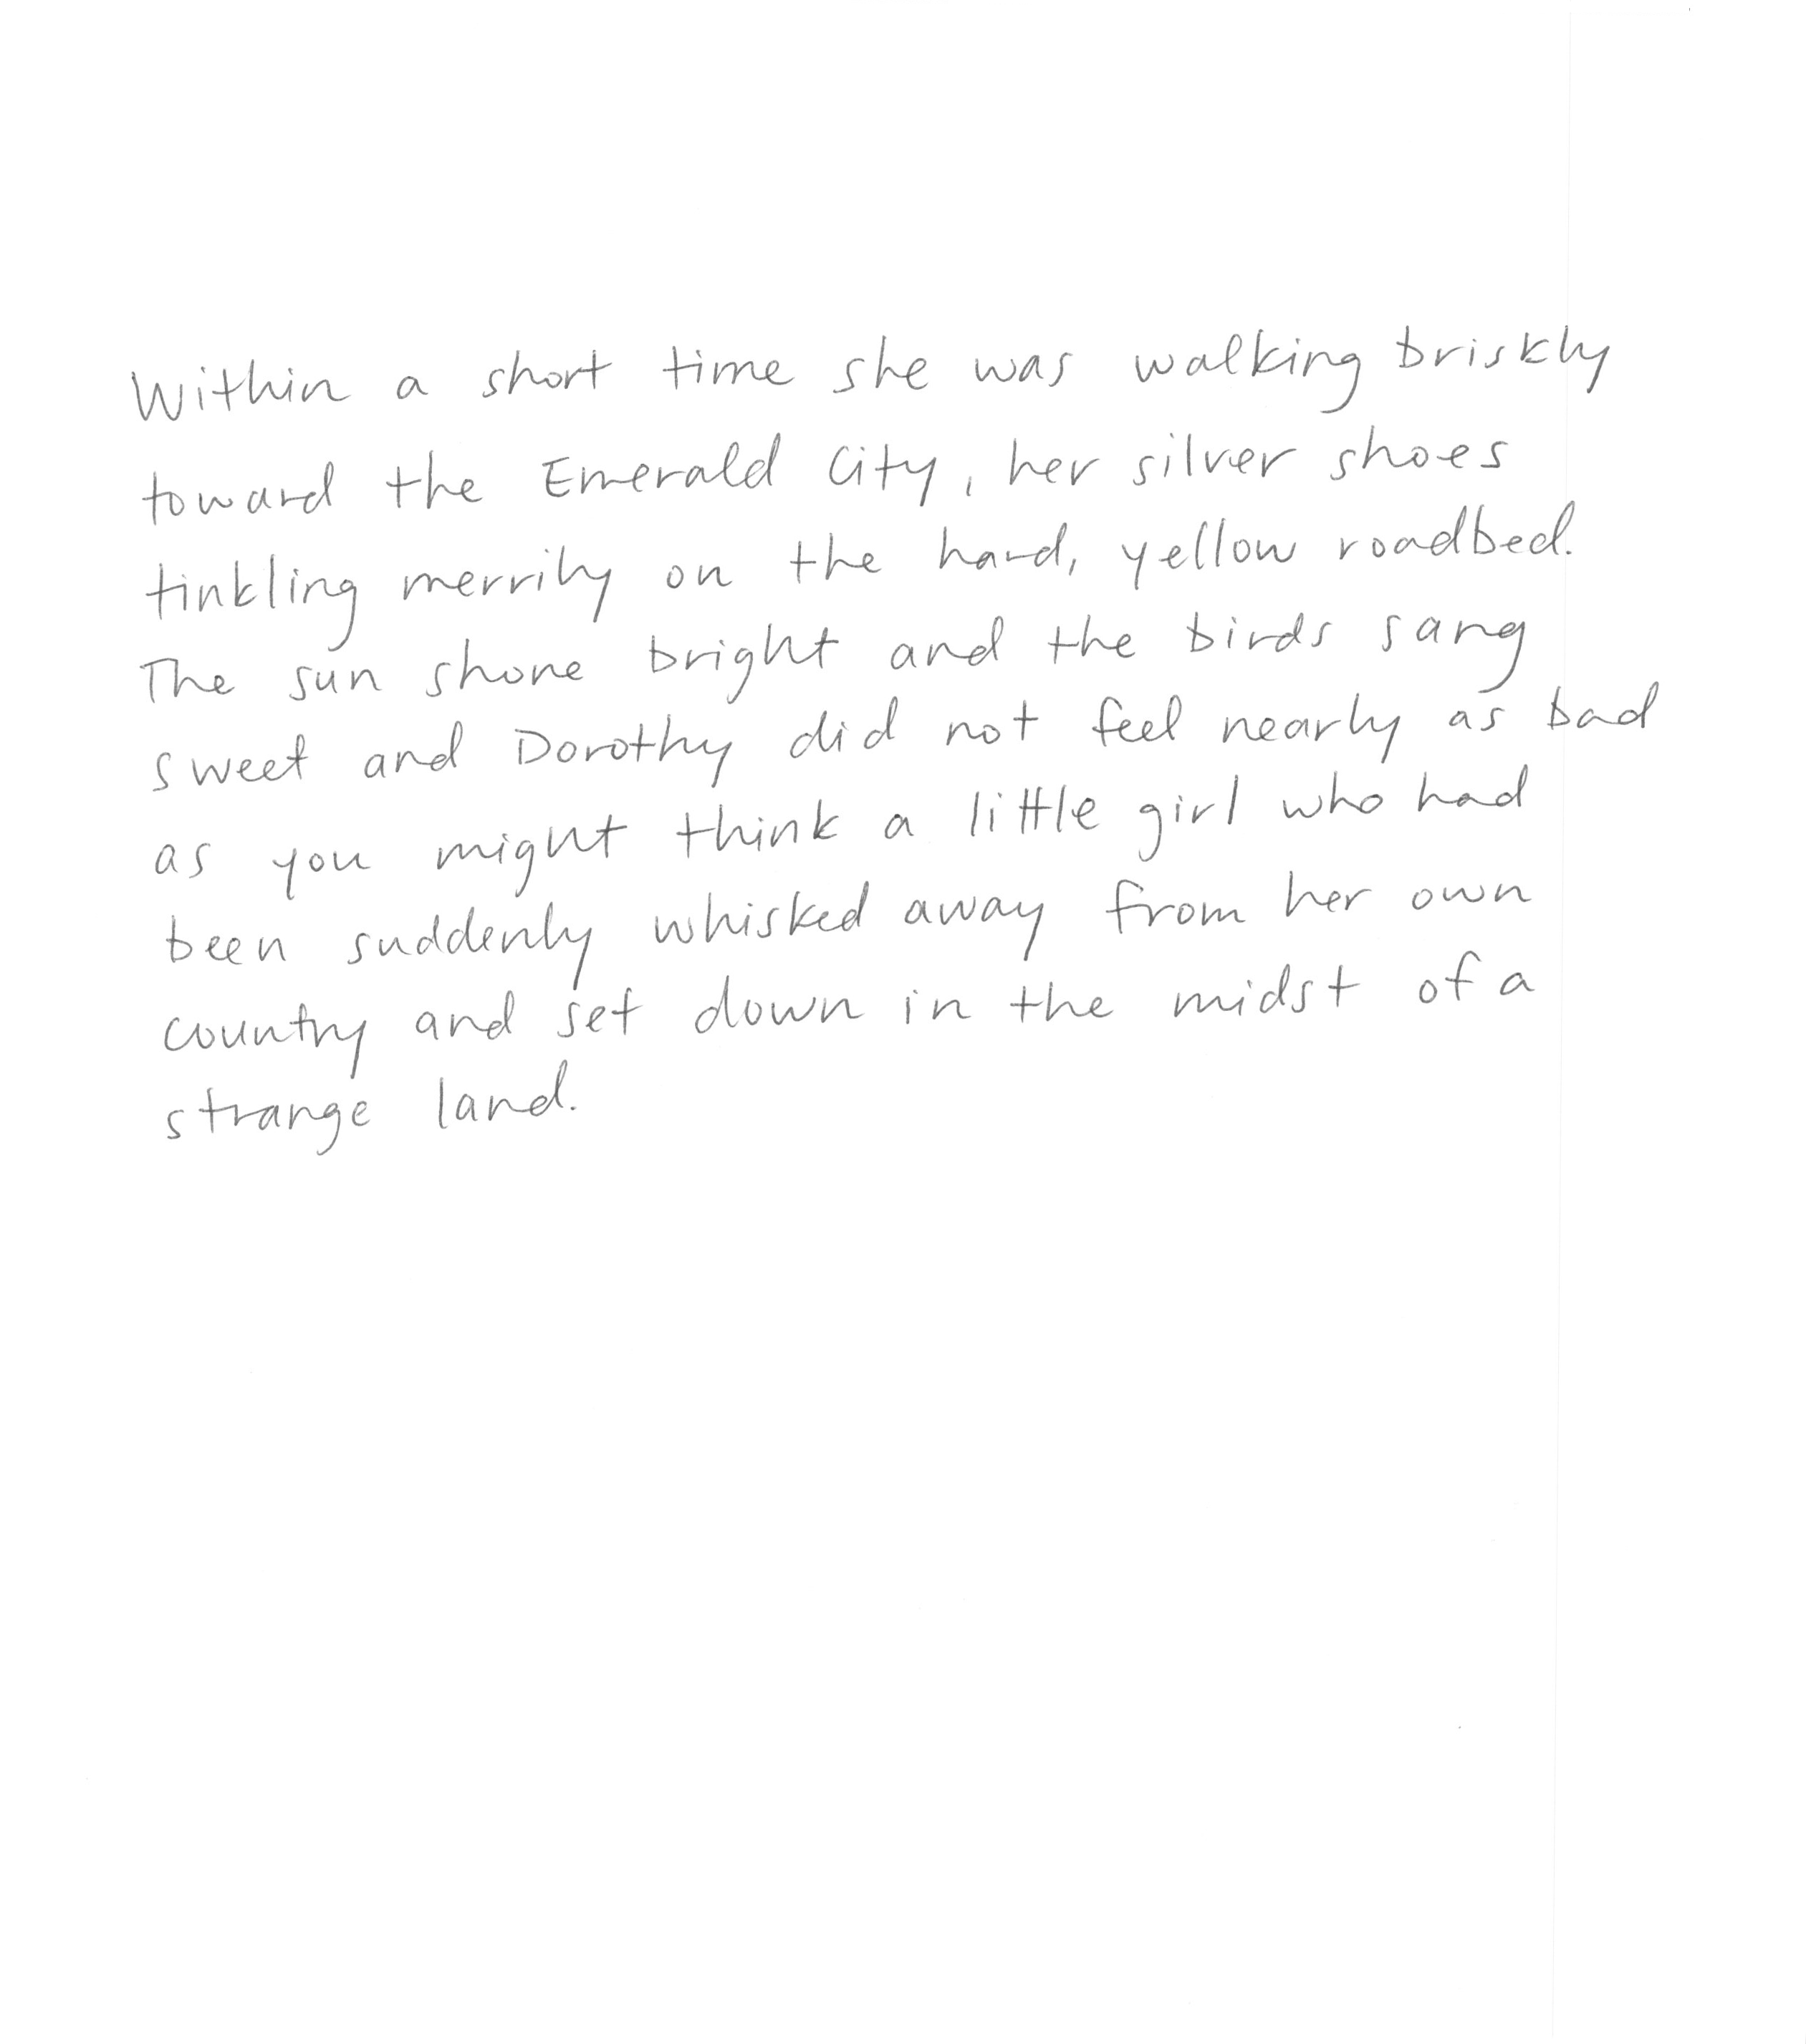 Within a short time she was walking briskly
toward the Emerald City, her silver shoes
tinkling merrily on the hard, yellow roadbed.
The sun shone bright and the birds sang
sweet and Dorothy did not feel nearly as bad
as you might think a little girl who had
been suddenly whisked away from her own
country and set down in the midst of a
strange land.